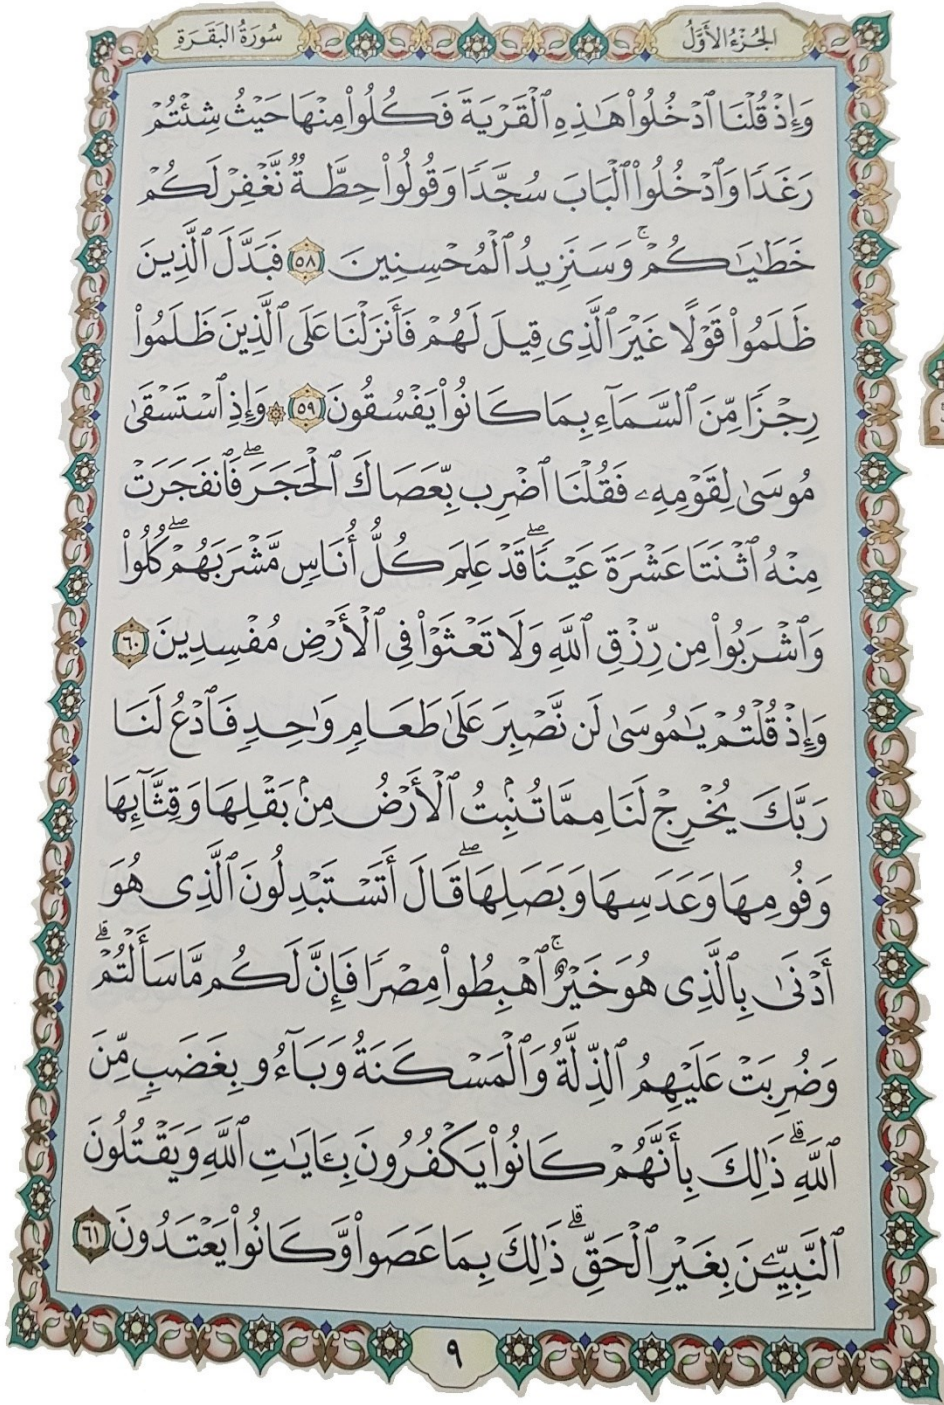 الجُزْءُ الأَوَّلُ
سُورَةُ البَقَرَةِ
وَإِذۡ قُلۡنَا ٱدۡخُلُواْ هَٰذِهِ ٱلۡقَرۡيَةَ فَكُلُواْ مِنۡهَا حَيۡثُ شِئۡتُمۡ
رَغَدٗا وَٱدۡخُلُواْ ٱلۡبَابَ سُجَّدٗا وَقُولُواْ حِطَّةٞ نَّغۡفِرۡ لَكُمۡ
خَطَٰيَٰكُمۡۚ وَسَنَزِيدُ ٱلۡمُحۡسِنِينَ ٥٨ فَبَدَّلَ ٱلَّذِينَ
ظَلَمُواْ قَوۡلًا غَيۡرَ ٱلَّذِي قِيلَ لَهُمۡ فَأَنزَلۡنَا عَلَى ٱلَّذِينَ ظَلَمُواْ
رِجۡزٗا مِّنَ ٱلسَّمَآءِ بِمَا كَانُواْ يَفۡسُقُونَ ٥٩ ۞ وَإِذِ ٱسۡتَسۡقَىٰ
مُوسَىٰ لِقَوۡمِهِۦ فَقُلۡنَا ٱضۡرِب بِّعَصَاكَ ٱلۡحَجَرَۖ فَٱنفَجَرَتۡ
مِنۡهُ ٱثۡنَتَا عَشۡرَةَ عَيۡنٗاۖ قَدۡ عَلِمَ كُلُّ أُنَاسٖ مَّشۡرَبَهُمۡۖ كُلُواْ
وَٱشۡرَبُواْ مِن رِّزۡقِ ٱللَّهِ وَلَا تَعۡثَوۡاْ فِي ٱلۡأَرۡضِ مُفۡسِدِينَ ٦٠
وَإِذۡ قُلۡتُمۡ يَٰمُوسَىٰ لَن نَّصۡبِرَ عَلَىٰ طَعَامٖ وَٰحِدٖ فَٱدۡعُ لَنَا
رَبَّكَ يُخۡرِجۡ لَنَا مِمَّا تُنۢبِتُ ٱلۡأَرۡضُ مِنۢ بَقۡلِهَا وَقِثَّآئِهَا
وَفُومِهَا وَعَدَسِهَا وَبَصَلِهَاۖ قَالَ أَتَسۡتَبۡدِلُونَ ٱلَّذِي هُوَ
أَدۡنَىٰ بِٱلَّذِي هُوَ خَيۡرٌۚ ٱهۡبِطُواْ مِصۡرٗا فَإِنَّ لَكُم مَّا سَأَلۡتُمۡۗ
وَضُرِبَتۡ عَلَيۡهِمُ ٱلذِّلَّةُ وَٱلۡمَسۡكَنَةُ وَبَآءُو بِغَضَبٖ مِّنَ
ٱللَّهِۗ ذَٰلِكَ بِأَنَّهُمۡ كَانُواْ يَكۡفُرُونَ بِـَٔايَٰتِ ٱللَّهِ وَيَقۡتُلُونَ
ٱلنَّبِيِّـۧنَ بِغَيۡرِ ٱلۡحَقِّۗ ذَٰلِكَ بِمَا عَصَواْ وَّكَانُواْ يَعۡتَدُونَ ٦١
٩